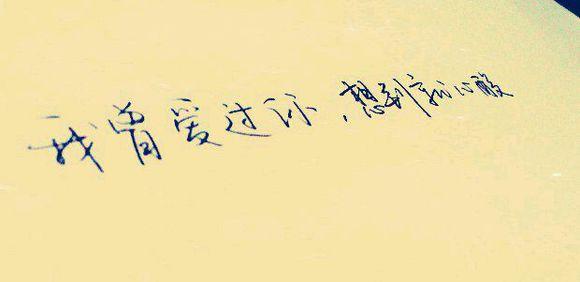 我曾爱过你，想到就心酸